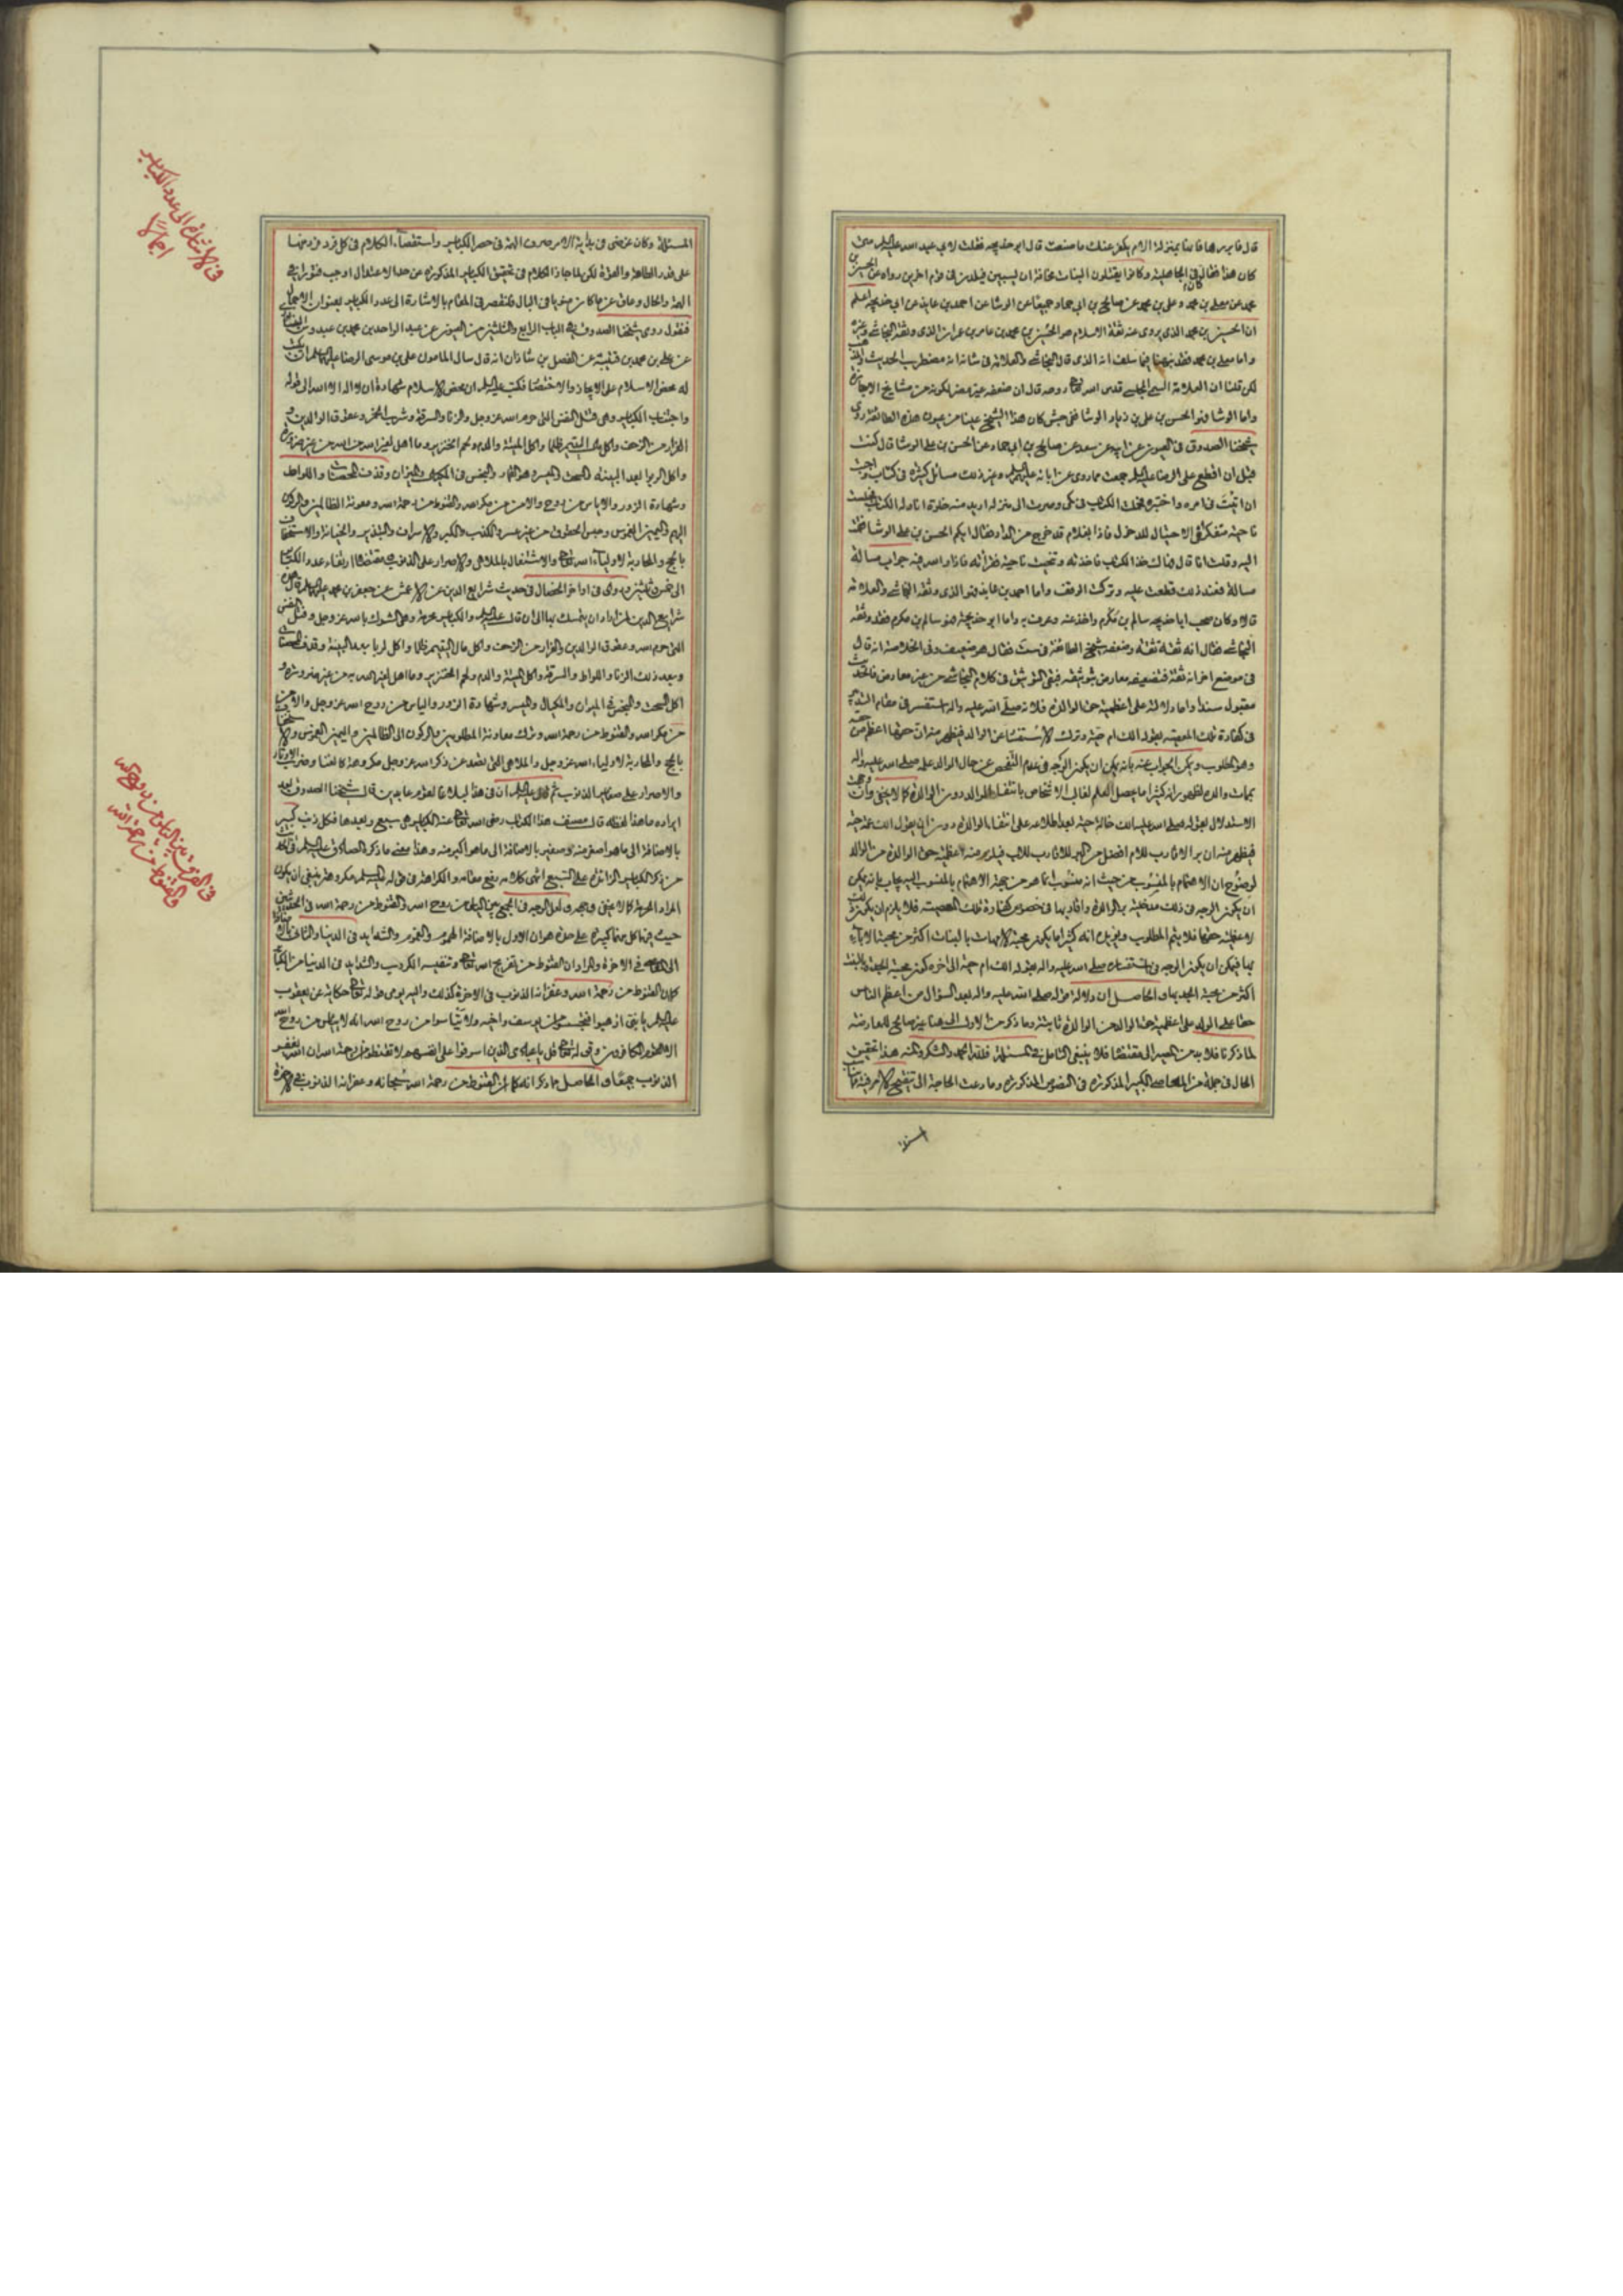 قال فابررها فانها بمنزلة الام يكفر عنك ما صنعت قال ابو خديجه فقلت لابي عبد الله عليه السلم متى
كان هذا فقال كان في الجاهلية وكانوا يقتلون البنات مخافة ان يسبين فيلدن في قوم اخرين رواه عن الحسين بن
محمد عن معلى بن محمد وعلي بن محمد عن صالح بن ابي حماد جميعا عن الوشا عن احمد بن عايذ عن ابي خديجه اعلم
ان الحسين بن محمد الذي يروي عنه ثقة الاسلام هو الحسين بن محمد بن عامر بن عمران الذي وثقه النجاشي وغيره
واما معلى بن محمد فقد نبهنا فيما سلف انه الذي قال النجاشي والعلامة في شانه انه مضطرب الحديث والمذهب
لكن قلنا ان العلامة السمي المجلسي قدس الله تعالى روحه قال ان ضعفه غير مضر لكونه من مشايخ الاجازة
واما الوشا فهو الحسن بن علي بن زياد الوشا قال جش كان هذا الشيخ عينا من عيون هذه الطائفة روى
شيخنا الصدوق في العيون عن ابيه عن سعد عن صالح بن ابي حماد عن الحسن بن علي الوشا قال كنت
قبل ان اقطع على الرضا عليه السلم جمعت مما روى عن ابائه عليهم السلم وغير ذلك مسائل كثيرة في كتاب واحببت
ان اثبت في امره واختبره فحملت الكتاب في كمي وصرت الى منزله اريد منه خلوة اناوله الكتاب فجلست
ناحية متفكرا في الاحتيال للدخول فاذا بغلام قد خرج من الدار فقال ايكم الحسن بن علي الوشا فقمت
اليه وقلت انا قال فهاك خذ الكتاب فاخذته وتنحيت ناحية فقرأته فاذا والله فيه جواب مسالة
مسالة فعند ذلك قطعت عليه وتركت الوقف واما احمد بن عايذ فهو الذي وثقه النجاشي والعلامة
قالا وكان صحب ابا خديجه سالم بن مكرم واخذ عنه وعرف به واما ابو خديجة فهو سالم بن مكرم فقد وثقه
النجاشي فقال انه ثقة ثقة وضعفه شيخ الطائفة في ست فقال هو ضعيف وفي الخلاصة انه قال
في موضع اخر انه ثقة فتضعيفه معارض بتوثيقه فبقى التوثيق في كلام النجاشي من غير معارض فالحديث
معتبر سندا واما دلالته على اعظمية حق الوالدة فلانه صلى الله عليه واله استفسر في مقام
في كفارة تلك المعصية بقوله الك ام حية وترك الاستفسار عن الوالد فيظهر منه ان حقها اعظم من حقه
وهو المطلوب ويمكن الجواب عنه بانه يمكن ان يكون الوجه في عدم التفحص عن حال الوالد علمه صلى الله عليه واله
بممات والده لظهور ان كثيرا ما يحصل العلم لغالب الاشخاص بانتفاء الوالد دون الوالدة كما لا يخفى
الاستدلال بقوله صلى الله عليه الك خالة حية بعد اطلاعه على انتفاء الوالدة دون ان يقول الك عمة حية
فيظهر منه ان بر الاقارب للام افضل من البر للاقارب للاب فيلزم منه اعظمية حق الوالدة من الوالد
لوضوح ان الاهتمام بالمنسوب من حيث انه منسوب انما هو من جهة الاهتمام بالمنسوب اليه يجاب بانه يمكن
ان يكون الوجه في ذلك مدخلية بر الوالدة واقاربها في خصوص كفارة تلك المعصية فلا يلزم ان يكون ذلك
لاعظمية حقها فلا يتم المطلوب ويؤيده انه كثيرا ما يكون محبة الامهات بالبنات اكثر من محبة الاباء
بها فيمكن ان يكون الوجه في استفساره صلى الله عليه واله بقوله الك ام حية الى اخره كون محبة الجدة بالبنت
اكثر من محبة الجد بها والحاصل ان دلالة قوله صلى الله عليه واله بعد السؤال من اعظم الناس
حقا على الولد على اعظمية حق الوالد من الوالدة ثابتة وما ذكر من الاول الى هنا غير صالح للمعارضة
لما ذكرنا فلا بد من المصير الى مقتضاها فلا ينبغي التامل في المسئلة فلله الحمد والشكر والمنة هذا تحقيق
الحال في جملة من المعاصي الكبيرة المذكورة في النصوص المذكورة وما دعت الحاجة الى تنقيح الامر فيه
المسئلة وكان غرضي في بداية الامر صرف الهمة في حصر الكبائر واستقصاء الكلام في كل فرد فرد منها
على قدر الطاقة والقوة لكن لما جاز الكلام في تحقيق الكبائر المذكورة عن حد الاعتدال اوجب فتورا في
الهمة والحال وعاق عن ما كان مخزونا في البال فلنقتصر في المقام بالاشارة الى عدد الكبائر بعنوان الاجمال
فنقول روى شيخنا الصدوق في الباب الرابع والثلثين من العيون عن عبد الواحد بن محمد بن عبدوس
عن علي بن محمد بن قتيبة عن الفضل بن شاذان انه قال سال المامون علي بن موسى الرضا عليهما السلم ان يكتب
له محض الاسلام على الايجاز والاختصار فكتب عليه السلم ان محض الاسلام شهادة ان لا اله الا الله الى قوله
واجتناب الكبائر وهي قتل النفس التي حرم الله عز وجل والزنا والسرقة وشرب الخمر وعقوق الوالدين و
الفرار من الزحف واكل مال اليتيم ظلما واكل الميتة والدم ولحم الخنزير وما اهل لغير الله به من غير ضرورة
واكل الربوا بعد البينة والسحت والميسر وهو القمار والبخس في المكيال والميزان وقذف المحصنات واللواط
وشهادة الزور والاياس من روح الله والامن من مكر الله والقنوط من رحمة الله ومعونة الظالمين والركون
اليهم واليمين الغموس وحبس الحقوق من غير عسر والكذب والكبر والاسراف والتبذير والخيانة والاستخفاف
بالحج والمحاربة لاولياء الله تعالى والاشتغال بالملاهي والاصرار على الذنوب مقتضاه ارتقاء عدد الكبائر
الى خمس وثلثين وروى في اواخر الخصال في حديث شرايع الدين عن الاعمش عن جعفر بن محمد عليهما السلم قال
شرايع الدين لمن اراد ان يتمسك بها الى ان قال عليه السلم والكبائر محرمة وهي الشرك بالله عز وجل وقتل النفس
التي حرم الله وعقوق الوالدين والفرار من الزحف واكل مال اليتيم ظلما واكل الربا بعد البينة وقذف المحصنات
وبعد ذلك الزنا واللواط والسرقة واكل الميتة والدم ولحم الخنزير وما اهل لغير الله به من غير ضرورة و
اكل السحت والبخس في الميزان والمكيال والميسر وشهادة الزور والياس من روح الله عز وجل والامن
من مكر الله والقنوط من رحمة الله وترك معاونة المظلومين والركون الى الظالمين واليمين الغموس
بالحج والمحاربة لاولياء الله عز وجل والملاهي التي تصد عن ذكر الله عز وجل مكروهة كالغنا وضرب الاوتار
والاصرار على صغاير الذنوب ثم قال عليه السلم ان في هذا لبلاغا لقوم عابدين قال شيخنا الصدوق بعد
ايراده ما هذا لفظه قال مصنف هذا الكتاب رضي الله تعالى عنه الكبائر هي سبع وبعدها فكل ذنب كبير
بالاضافة الى ما هو اصغر منه وصغير بالاضافة الى ما هو اكبر منه وهذا معنى ما ذكره الصادق عليه السلم
من ذكر الكبائر الزائدة على السبع انتهى كلامه رفع مقامه والكراهة في قوله عليه السلم مكروهة ينبغي ان يكون
المراد الحرمة كما لا يخفى وجهه ولعل الوجه في الجمع بين الياس من روح الله والقنوط من رحمة الله في الحديثين
حيث عد كل منهما كبيرة على حدة هو ان الاول بالاضافة الى الهموم والغموم والشدايد في الدنيا والثاني
في الاخرة والمراد ان القنوط من تفريج الله تعالى وتنفيسه الكروب والشدايد في الدنيا من الكبائر
كما ان القنوط من رحمة الله وغفرانه الذنوب في الاخرة كذلك واليه يومي قوله تعالى حكاية عن يعقوب
عليه السلم يا بني اذهبوا فتحسسوا من يوسف واخيه ولا تيأسوا من روح الله انه لا يياس من روح الله
الا القوم الكافرون وقوله تعالى قل يا عبادي الذين اسرفوا على انفسهم لا تقنطوا من رحمة الله ان الله يغفر
الذنوب جميعا والحاصل ما ذكر انه كما ان القنوط من رحمة الله سبحانه وغفرانه الذنوب في الاخرة
في الاشارة الى عدد الكبائر
اجمالا
في الفرق بين الياس من روح الله
والقنوط من رحمة الله
المسئلة